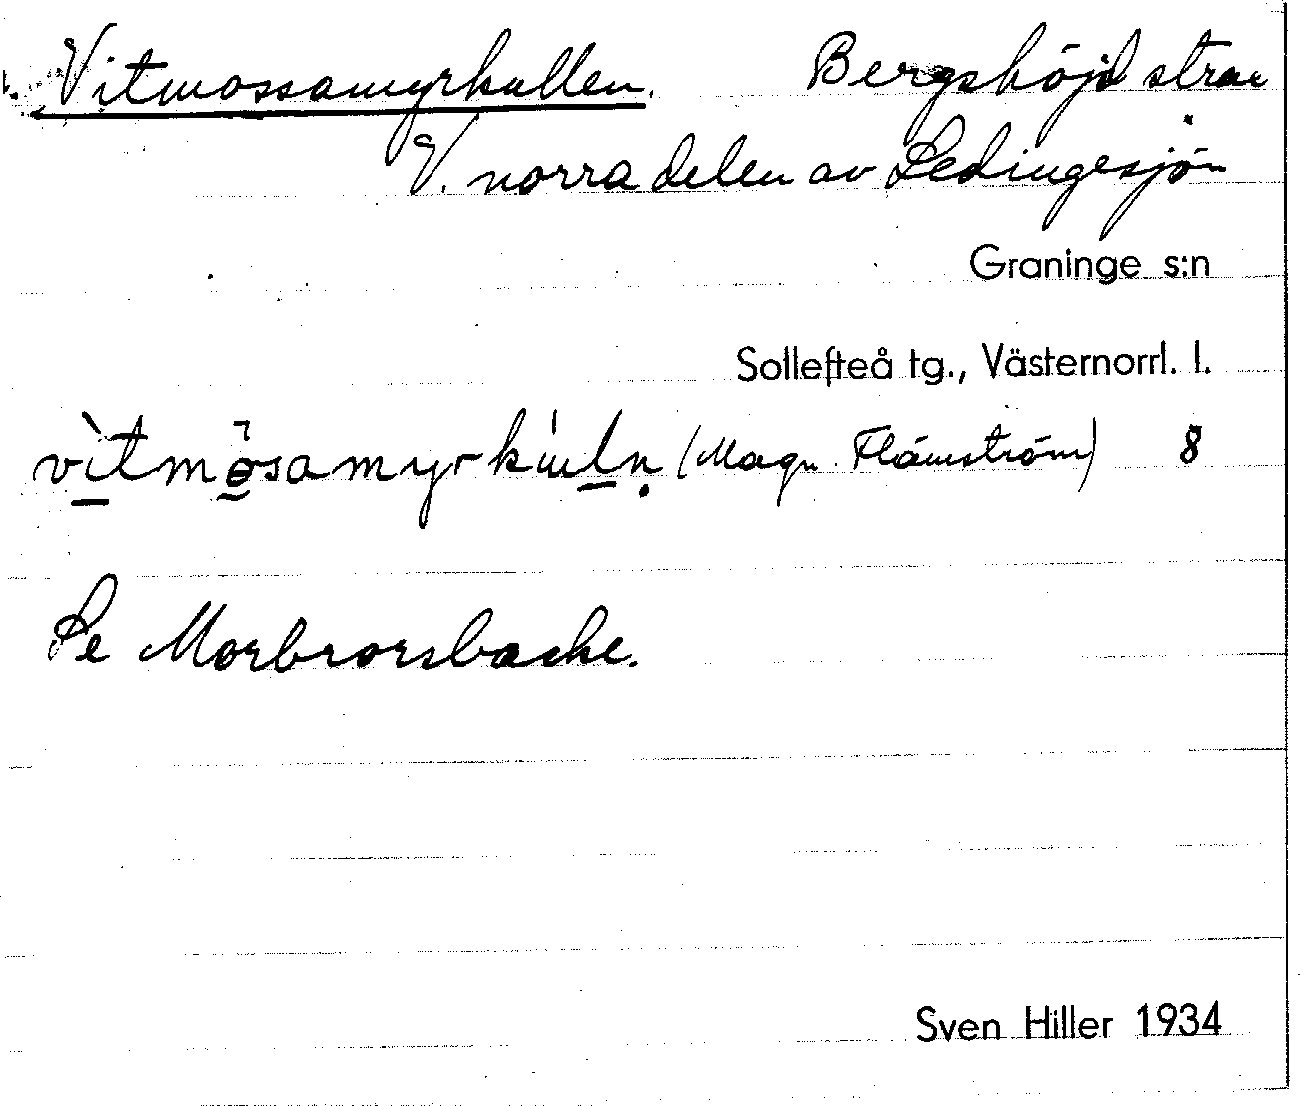 Vitmossamyrkullen. Bergshöjd strax
V. norra delen av Ledingesjön
Graninge s:n
Sollefteå tg., Västernorrl. l.
(Magn. Flämström) 8
Se Morbrorsbacke.
Sven Hiller 1934